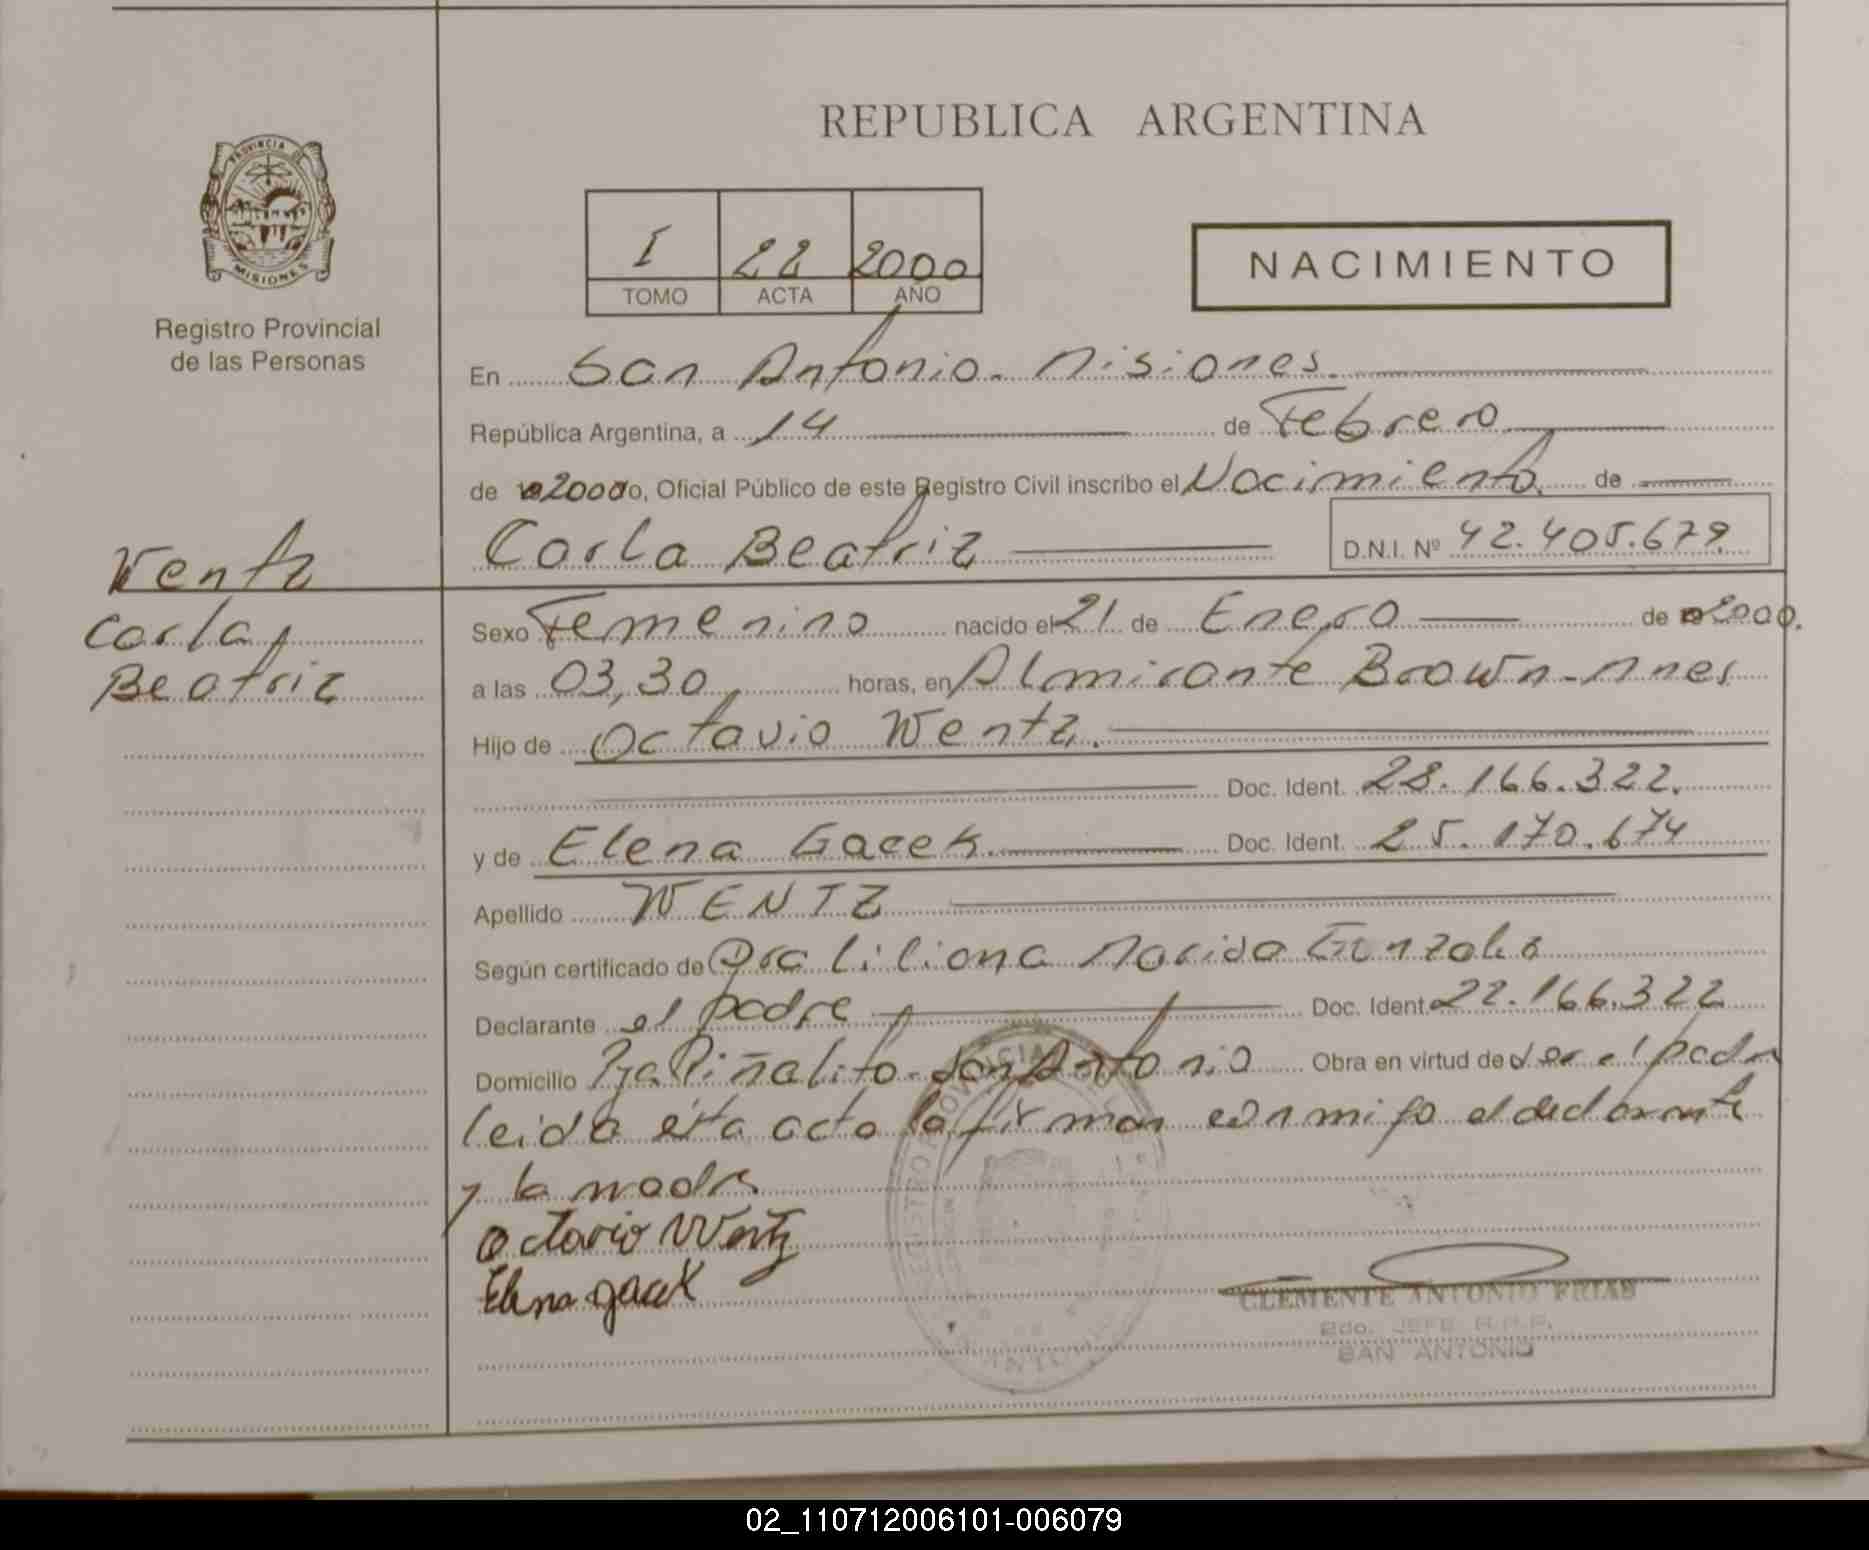 REPUBLICA ARGENTINA
PROVINCIA DE
MISIONES
Registro Provincial
de las Personas
I 22 2000
TOMO ACTA AÑO
NACIMIENTO
En San Antonio - Misiones.
República Argentina, a 14 de Febrero
de 2000 yo, Oficial Público de este Registro Civil inscribo el Nacimiento de
Carla Beatriz D.N.I. Nº 42.405.679
Wentz
Carla
Beatriz
Sexo Femenino nacido el 21 de Enero de 2000.
a las 03,30 horas, en Almirante Brown - Mnes
Hijo de Octavio Wentz.
Doc. Ident. 28.166.322.
y de Elena Gacek Doc. Ident. 25.170.674
Apellido WENTZ
Según certificado de Dra Liliana Gonzalez
Declarante el padre Doc. Ident. 22.166.322
Domicilio Piñalito - San Antonio Obra en virtud de ser el padre
leida esta acta la firman conmigo el declarante
y la madre
Octavio Wentz
Elena Gacek
CLEMENTE ANTONIO FRIAS
JEFE R.P.P.
SAN ANTONIO
02_110712006101-006079